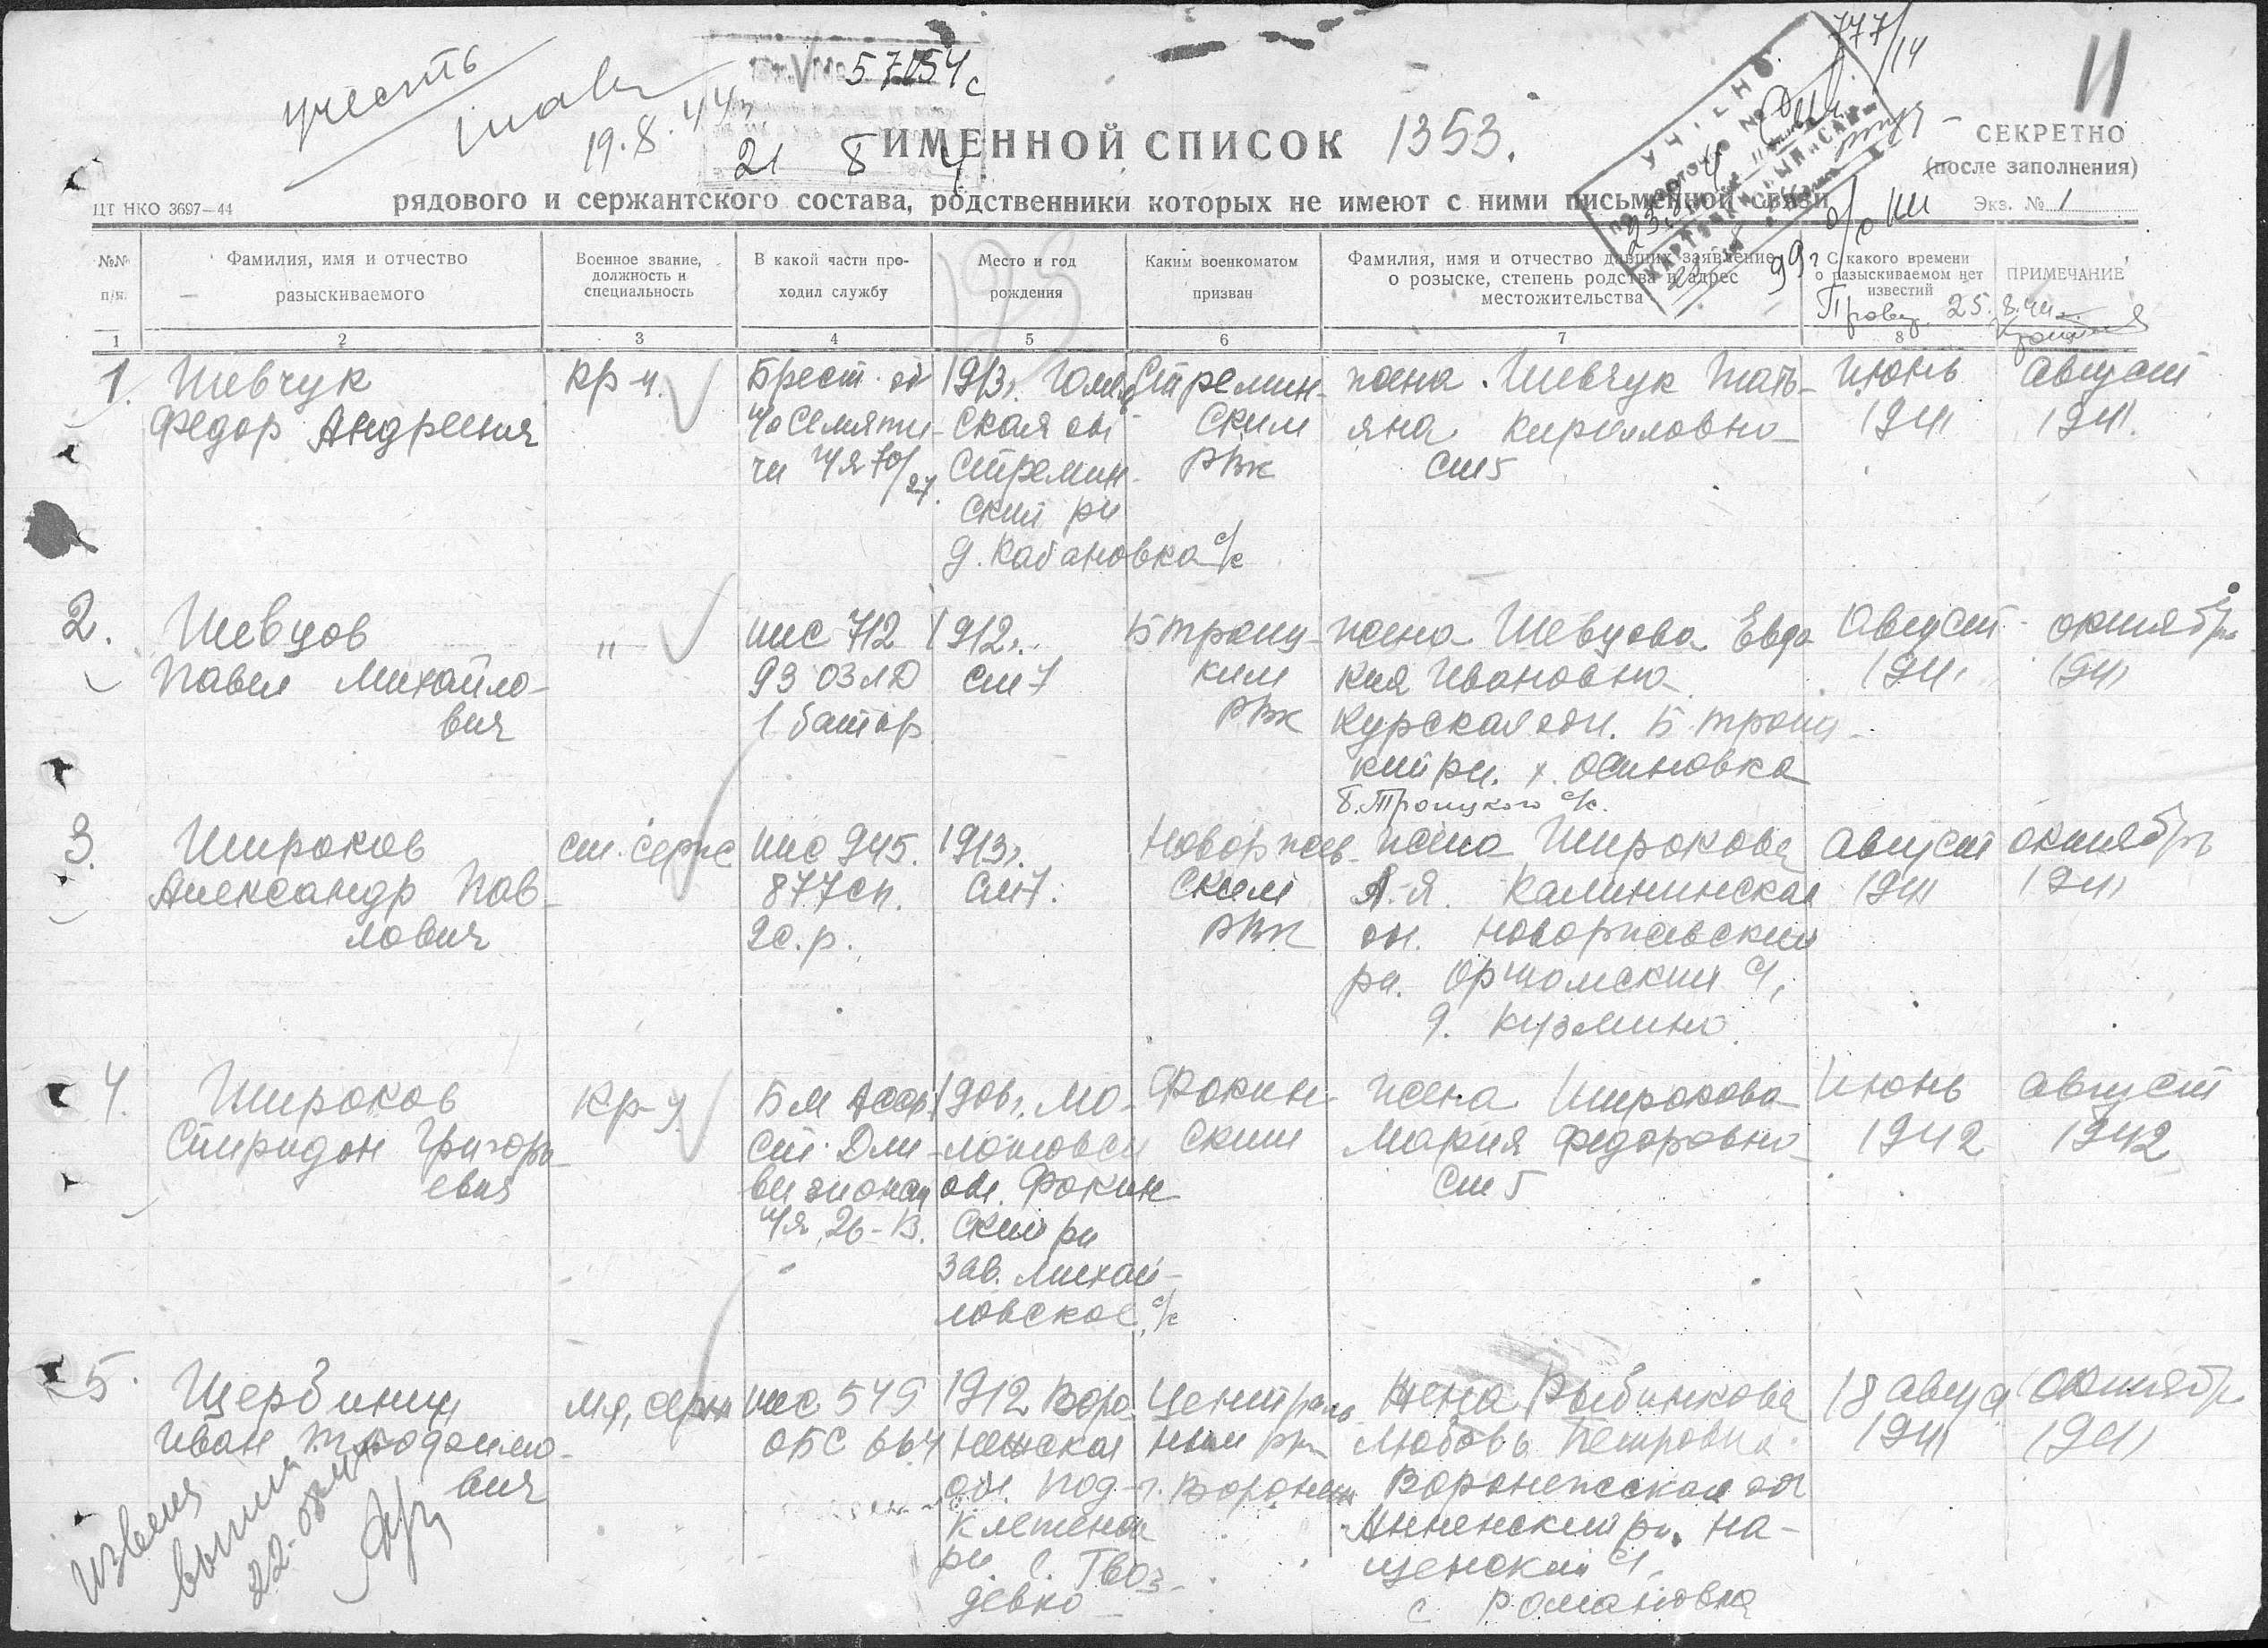 учесть
19.8.44г.
57154с
21 8 4
777/14
11
ИМЕННОЙ СПИСОК 1353.
СЕКРЕТНО
(после заполнения)
рядового и сержантского состава, родственники которых не имеют с ними письменной связи
ЦТ НКО 3697—44
Экз. № 1
№№ п/п.
Фамилия, имя и отчество разыскиваемого
Военное звание, должность и специальность
В какой части проходил службу
Место и год рождения
Каким военкоматом призван
Фамилия, имя и отчество давших заявление о розыске, степень родства и адрес местожительства
С какого времени о разыскиваемом нет известий
ПРИМЕЧАНИЕ
1 2 3 4 5 6 7 8
1. Шевчук
Федор Андреевич
кр-ц.
Брест. об
г/о Семяти-
чи п/я 70/27.
1913г. Гомель
ская обл
Стремин-
ский рн
д. Кабановка с/с
Стремин-
ским
РВК
жена. Шевчук Тать-
яна Кирилловна
см 5
Июнь
1941
Август
1941.
2. Шевцов
Павел Михайло-
вич
"
ппс 712
93 ОЗАД
1 батар
1912г.
см 7
Б троиц-
ким
РВК
жена Шевцова Евдо
кия Ивановна
Курская обл. Б троиц-
кий рн. х. Осиновка
Б.Троицкого с/с.
Август
1941
октябрь
1941
3. Широков
Александр Пав-
лович
ст. серж
ппс 945.
877сп.
2с.р.
1913г.
см 7.
Новоржев-
ским
РВК
жена Широкова
А.Я. Калининская
обл. Новоржевский
рн.
д. Кузмино
Август
1941
октябрь
1941
4. Широков
Спиридон Григорь-
евич
кр-ц
Бм АССР
ст. Дми-
п/я 26-В.
Мо-
лотовск
обл. Фокин-
ский рн
зав. Михай-
ловское с/с
Фокин-
ским
жена Широкова
Мария Федоровна
см 5
Июнь
1942
Август
1942
5. Щербинин
Иван
вич
мл. серж
ппс 549
ОБС 664
1912 Воро
нежская
обл. Под-
рн с. Гвоз-
девко
Централь
ным рвк
г. Воронеж
жена Рыбинкова
Любовь Петровна
Воронежская обл
Аннинский рн. На-
щенский с/
с Романовка
18 август
1941
октябрь
1941